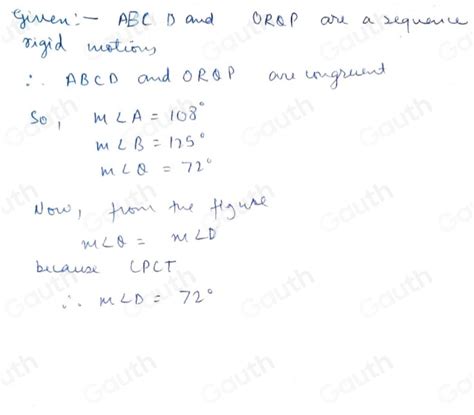 Given:- ABC D and ORQP are a sequence
rigid motions
∴ ABCD and ORQP are congruent
So, m∠A = 108°
m∠B = 125°
m∠Q = 72°
Now, from the figure
m∠Q = m∠D
because CPCT
∴ m∠D = 72°